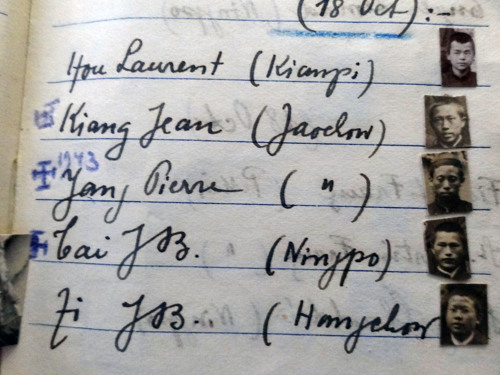 (18 Oct) :-
Hou Laurent (Kianpi)
Kiang Jean (Jaochow)
1943
Yang Pierre ( " )
Tai JB. (Ningpo)
Zi JB. (Hangchow